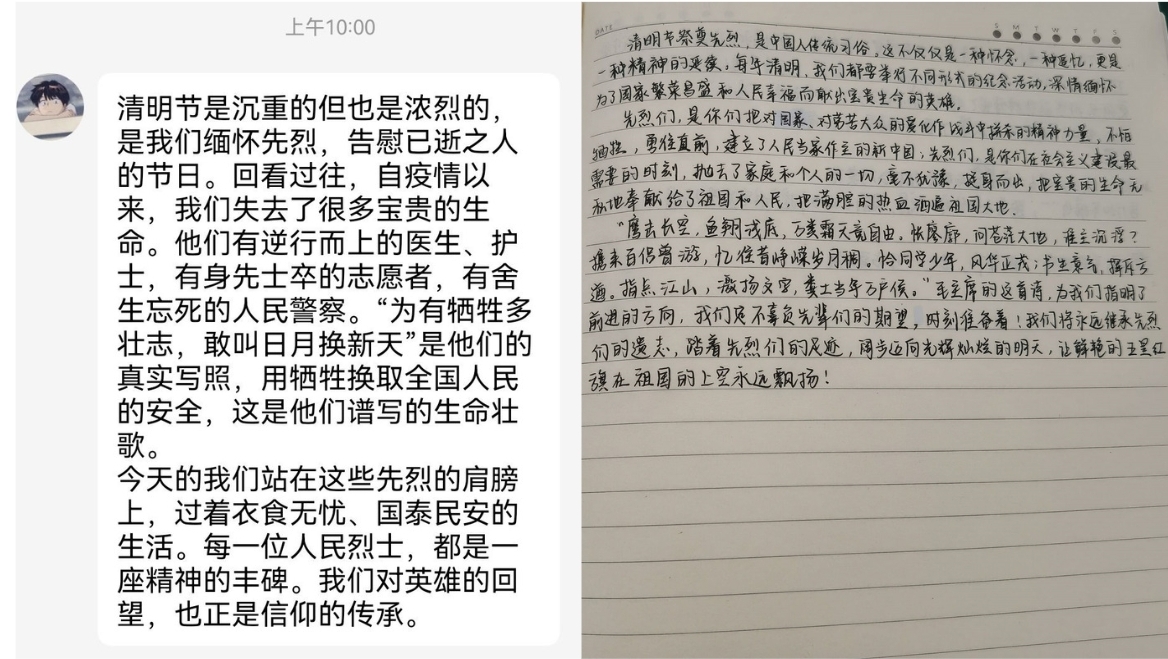 上午10:00
清明节是沉重的但也是浓烈的，
是我们缅怀先烈，告慰已逝之人
的节日。回看过往，自疫情以
来，我们失去了很多宝贵的生
命。他们有逆行而上的医生、护
士，有身先士卒的志愿者，有舍
生忘死的人民警察。“为有牺牲多
壮志，敢叫日月换新天”是他们的
真实写照，用牺牲换取全国人民
的安全，这是他们谱写的生命壮
歌。
今天的我们站在这些先烈的肩膀
上，过着衣食无忧、国泰民安的
生活。每一位人民烈士，都是一
座精神的丰碑。我们对英雄的回
望，也正是信仰的传承。
DATE
S M T W T F S
清明节祭奠先烈，是中国人传统习俗，这不仅仅是一种怀念，一种追忆，更是
一种精神的延续，每年清明，我们都要举行不同形式的纪念活动，深情缅怀
为了国家繁荣昌盛和人民幸福而献出宝贵生命的英雄。
先烈们，是你们把对国家、对劳苦大众的爱化作战斗中拼杀的精神力量，不怕
牺牲，勇往直前，建立了人民当家作主的新中国；先烈们，是你们在社会主义建设最
需要的时刻，抛去了家庭和个人的一切，毫不犹豫，挺身而出，把宝贵的生命无
私地奉献给了祖国和人民，把满腔的热血洒遍祖国大地。
“鹰击长空，鱼翔浅底，万类霜天竞自由。怅寥廓，问苍茫大地，谁主沉浮？
携来百侣曾游，忆往昔峥嵘岁月稠。恰同学少年，风华正茂；书生意气，挥斥方
遒。指点江山，激扬文字，粪土当年万户侯。”毛主席的这首诗，为我们指明了
前进的方向，我们定不辜负先辈们的期望，时刻准备着！我们将永远继承先烈
们的遗志，踏着先烈们的足迹，阔步迈向光辉灿烂的明天，让鲜艳的五星红
旗在祖国的上空永远飘扬！